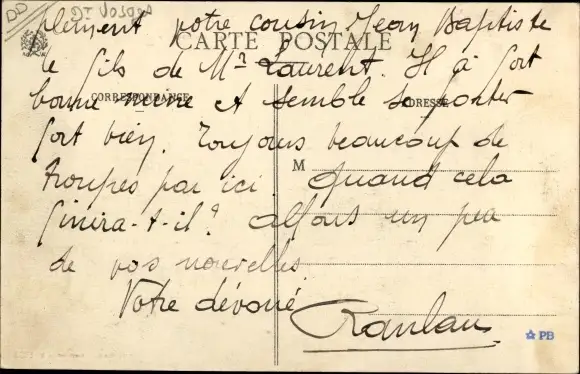 DD
Dt Vosges
plement votre cousin Jean Baptiste
CARTE POSTALE
le fils de Mr Laurent. Il a fort
CORRESPONDANCE
ADRESSE
bonne mine et semble se porter
fort bien. Toujours beaucoup de
M
troupes par ici. Quand cela
finira-t-il? Allons un peu
de vos nouvelles.
Votre dévoué
PB